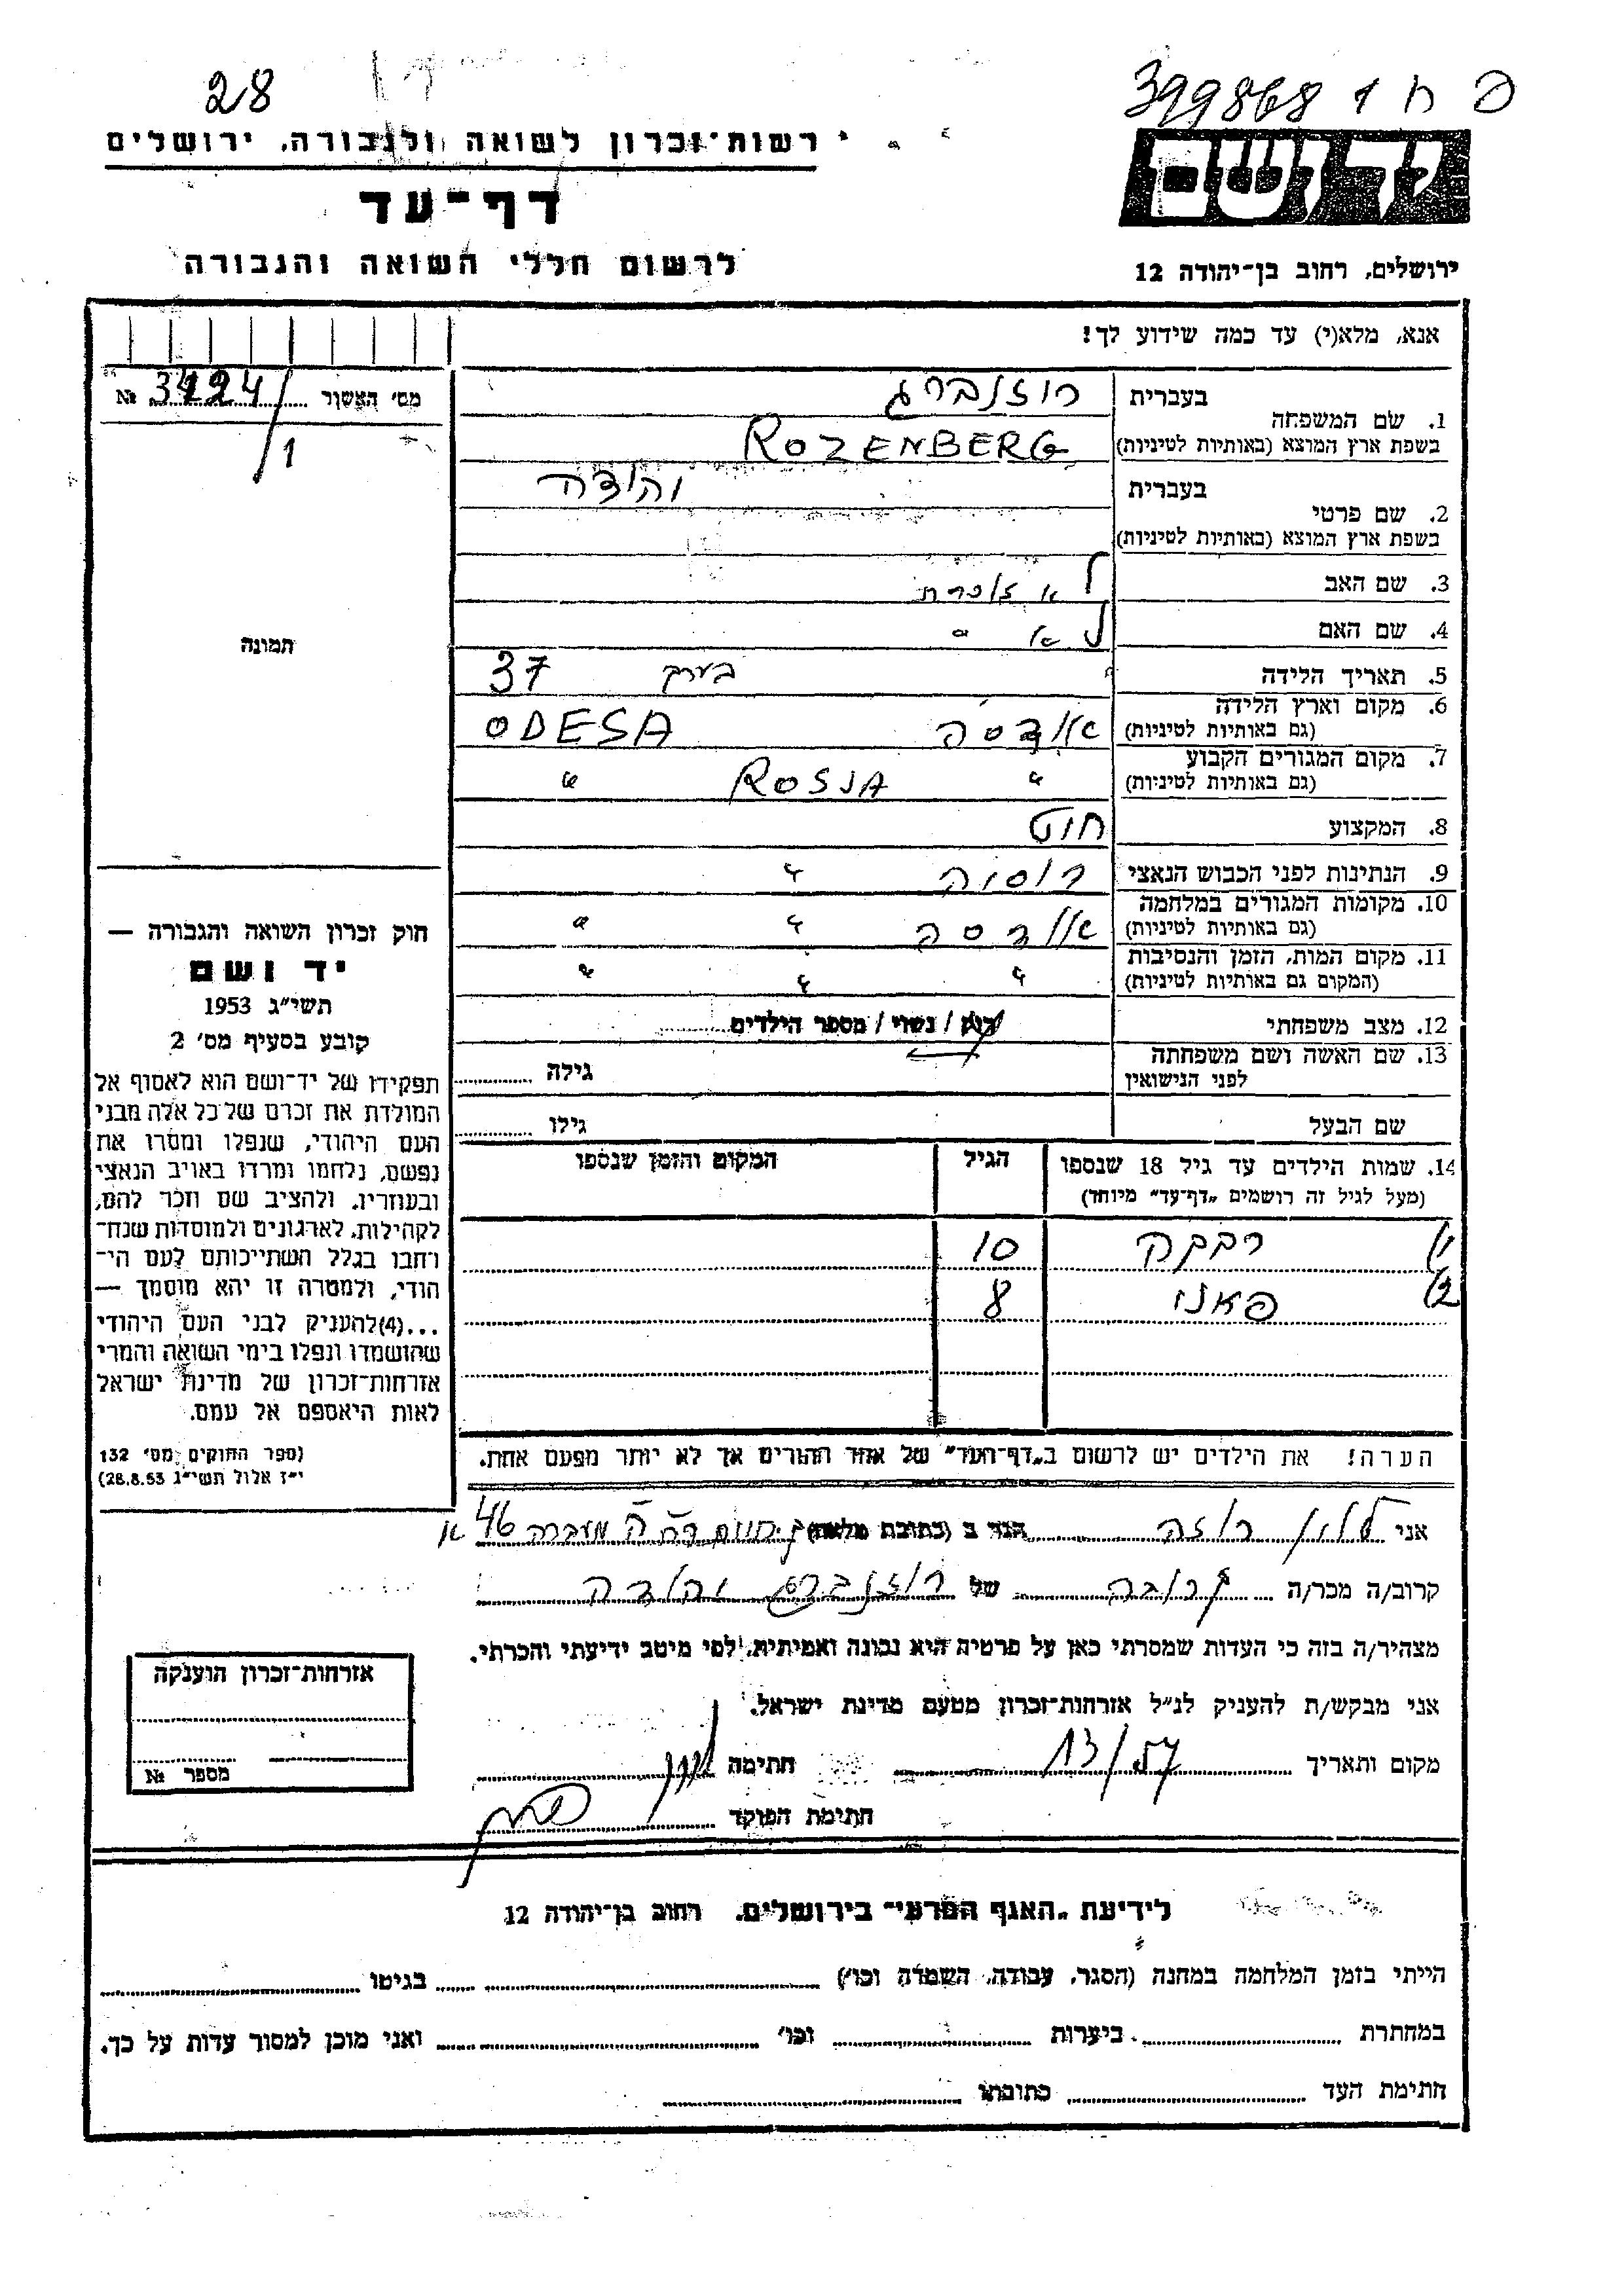 28
399868 1 ח פ
רשות־זכרון לשואה ולגבורה, ירושלים
יד ושם
דף־עד
לרשום חללי השואה והגבורה
ירושלים, רחוב בן־יהודה 12
אנא, מלא(י) עד כמה שידוע לך!
מס׳ האשור 3424 №
/1
תמונה
1. שם המשפחה
בעברית רוזנברג
בשפת ארץ המוצא (באותיות לטיניות) ROZENBERG
2. שם פרטי
בעברית יהודה
בשפת ארץ המוצא (באותיות לטיניות)
3. שם האב לא זוכרת
4. שם האם לא "
5. תאריך הלידה בערך 37
6. מקום וארץ הלידה
(גם באותיות לטיניות) אודסה ODESA
7. מקום המגורים הקבוע
(גם באותיות לטיניות) " ROSJA "
8. המקצוע
9. הנתינות לפני הכבוש הנאצי רוסיה "
10. מקומות המגורים במלחמה
(גם באותיות לטיניות) אודסה " "
11. מקום המות, הזמן והנסיבות
(המקום גם באותיות לטיניות) " " "
12. מצב משפחתי רוק / נשוי / מספר הילדים
13. שם האשה ושם משפחתה
לפני הנישואין
גילה
שם הבעל
גילו
14. שמות הילדים עד גיל 18 שנספו
(מעל לגיל זה רושמים „דף־עד״ מיוחד)
הגיל
המקום והזמן שנספו
1) רבקה 10
2) פאני 8
הערה! את הילדים יש לרשום ב„דף־העד״ של אחד ההורים אך לא יותר מפעם אחת.
חוק זכרון השואה והגבורה —
יד ושם
תשי״ג 1953
קובע בסעיף מס׳ 2
תפקידו של יד־ושם הוא לאסוף אל
המולדת את זכרם של כל אלה מבני
העם היהודי, שנפלו ומסרו את
נפשם, נלחמו ומרדו באויב הנאצי
ובעוזריו, ולהציב שם וזכר להם,
לקהילות, לארגונים ולמוסדות שנח־
רבו בגלל השתייכותם לעם הי־
הודי, ולמטרה זו יהא מוסמך —
...(4)להעניק לבני העם היהודי
שהושמדו ונפלו בימי השואה והמרי
אזרחות־זכרון של מדינת ישראל
לאות היאספם אל עמם.
(ספר החוקים מס׳ 132
י״ז אלול תשי״ג 28.8.53)
אני רוזה הגר ב (כתובת מלאה) 46 א
קרוב/ה מכר/ה קרובה של רוזנברג יהודה
מצהיר/ה בזה כי העדות שמסרתי כאן על פרטיה היא נכונה ואמיתית, לפי מיטב ידיעתי והכרתי.
אני מבקש/ת להעניק לנ״ל אזרחות־זכרון מטעם מדינת ישראל.
מקום ותאריך 13/ חתימה
חתימת הפוקד
אזרחות־זכרון הוענקה
מספר №
לידיעת „האגף המדעי״ בירושלים, רחוב בן־יהודה 12
הייתי בזמן המלחמה במחנה (הסגר, עבודה, השמדה וכו׳) בגיטו
במחתרת ביערות וכו׳ ואני מוכן למסור עדות על כך.
חתימת העד כתובתו